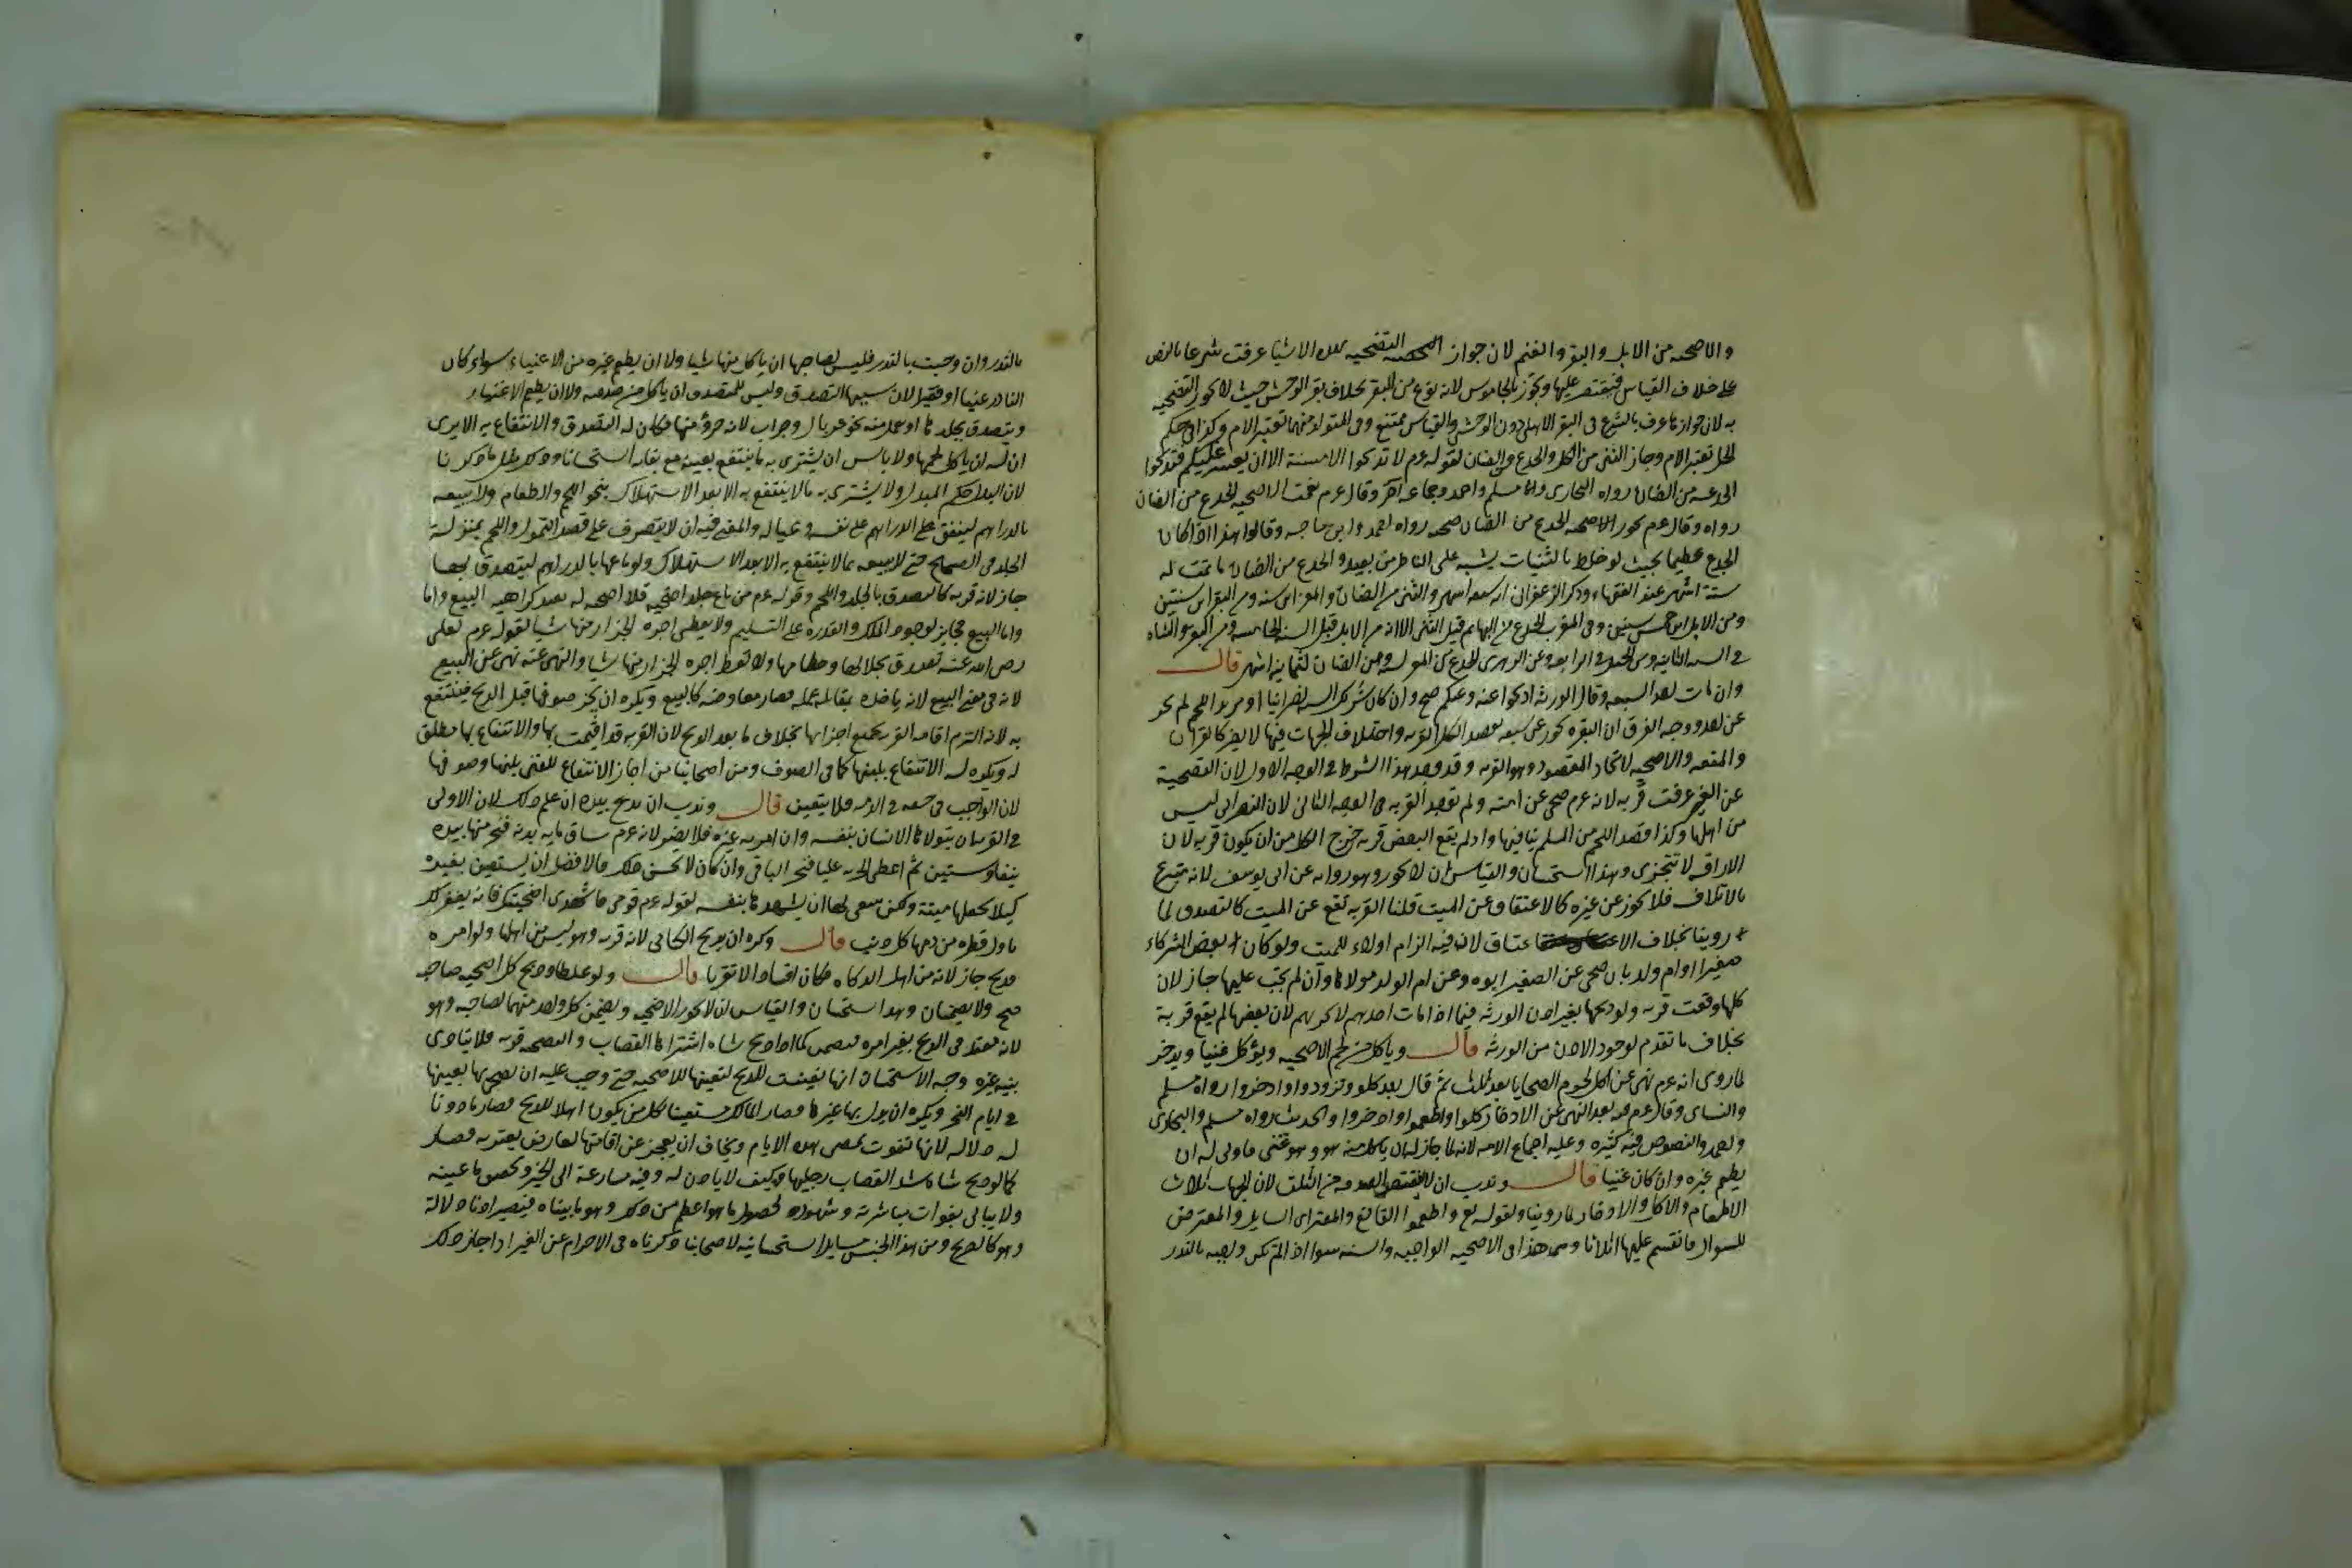 والاضحية من الابل والبقر والغنم لان جواز التضحية بهذه الاشيا عرفت شرعا بالنص
على خلاف القياس فيقتصر عليها وتجوز بالجاموس لانه نوع من البقر بخلاف بقر الوحش حيث لا تجوز التضحيه
به لان جوازها عرف بالشرع في البقر الاهلي دون الوحشي والقياس ممتنع وفي المتولد منهما تعتبر الام وكذا في حكم
الحل تعتبر الام وجاز الثني من الكل والجذع من الضان لقوله عم لا تذبحوا الا مسنة الا ان يعسر عليكم فتذبحوا
الجذعة من الضان رواه البخاري ومسلم واحمد وجماعة اخر وقال عم نعمت الاضحية الجذع من الضان
رواه وقال عم تجوز الاضحية الجذع من الضان ضحية رواه احمد وابن ماجه وقالوا هذا اذا كان
الجذع عظيما بحيث لو خلط بالثنيات يشتبه على الناظر من بعيد والجذع من الضان ما تمت له
ستة اشهر عند الفقهاء وذكر الزعفراني انه ابن سبعة اشهر والثني من الضان والمعز ابن سنة ومن البقر ابن سنتين
ومن الابل ابن خمس سنين وفي المغرب الجذع من البهائم قبل الثني الا انه من الابل قبل السنة الخامسة ومن البقر والشاه
في السنة الثانية ومن الخيل في الرابعة وعن الزهري الجذع من المعز لسنة ومن الضان لثمانية اشهر قال
وان مات احد السبعه وقال الورثة اذبحوا عنه وعنكم صح وان كان شريك الستة نصرانيا او مريد اللحم لم يجز
عن احد ووجه الفرق ان البقرة تجوز عن سبعه بقصد الكل القربه واختلاف الجهات فيها لا يضر كالقران
والمتعه والاضحيه لاتحاد المقصود وهو القربه وقد وجد هذا الشرط في الوجه الاول لان التضحية
عن الغير عرفت قربه لانه عم ضحى عن امته ولم توجد القربه في الوجه الثاني لان النصراني ليس
من اهلها وكذا قصد اللحم من المسلم ينافيها واذا لم يقع البعض قربه خرج الكل من ان يكون قربه لان
الاراقه لا تتجزى وهذا استحسان والقياس ان لا يجوز وهو روايه عن ابي يوسف لانه تبرع
بالاتلاف فلا يجوز عن غيره كالاعتاق عن الميت قلنا القربه تقع عن الميت كالتصدق لما
روينا بخلاف الاعتاق لان فيه الزام الولاء للميت ولو كان بعض الشركاء
صغيرا او ام ولد بان ضحى عن الصغير ابوه وعن ام الولد مولاها وان لم يجب عليها جاز لان
كلها وقعت قربه ولو ذبحوها بغير اذن الورثه فيما اذا مات احدهم لا تجزيهم لان بعضها لم يقع قربة
بخلاف ما تقدم لوجود الاذن من الورثه قال وياكل من لحم الاضحيه ويؤكل غنيا ويدخر
لما روى انه عم نهى عن اكل لحوم الضحايا بعد ثلث ثم قال بعد كلوا وتزودوا وادخروا رواه مسلم
والنسائي وقال عم فيه بعد النهي عن الادخار كلوا واطعموا وادخروا والحديث رواه مسلم والبخاري
واحمد والنصوص فيه كثيره وعليه اجماع الامه لانه لما جاز له ان ياكل منه هو وهو غني فاولى له ان
يطعم غيره وان كان غنيا قال وندب ان لا ينقص الصدقه من الثلث لان الجهات ثلاث
الاطعام والاكل والادخار لما روينا ولقوله تع واطعموا القانع والمعتر اي السايل والمعترض
للسوال فانقسم عليها اثلاثا وهذا في الاضحيه الواجبه والسنه سوا اذا لم تكن واجبه بالنذر
بالنذر وان وجبت بالنذر فليس لصاحبها ان ياكل منها شيا ولا ان يطعم غيره من الاغنياء سواء كان
الناذر غنيا او فقيرا لان سبيلها التصدق وليس للمتصدق ان ياكل من صدقته ولا ان يطعم الاغنياء
ويتصدق بجلدها او يعمل منه نحو غربال وجراب لانه جزؤ منها فكان له التصدق والانتفاع به الا يرى
ان له ان ياكل لحمها ولا باس ان يشتري به ما ينتفع بعينه مع بقائه استحسانا وذلك مثل ما ذكرنا
لان للبدل حكم المبدل ولا يشتري به ما لا ينتفع به الا بعد الاستهلاك نحو اللحم والطعام ولا يبيعه
بالدراهم لينفق الدراهم على نفسه وعياله والمعنى فيه ان لا يتصرف على قصد التمول واللحم بمنزلة
الجلد في الصحيح حتى لا يبيعه بما لا ينتفع به الا بعد الاستهلاك ولو باعها بالدراهم ليتصدق بها
جاز لانه قربه كالتصدق بالجلد واللحم وقوله عم من باع جلد اضحيته فلا اضحيه له يفيد كراهيه البيع واما
واما البيع فجايز لوجود الملك والقدره على التسليم ولا يعطي اجره الجزار منها شيا لقوله عم لعلي
رضى الله عنه تصدق بجلالها وخطامها ولا تعط اجره الجزار منها شيا والنهي عنه نهي عن البيع
لانه في معنى البيع لانه ياخذه بمقابلة عمله فصار معاوضه كالبيع ويكره ان يجز صوفها قبل الذبح فينتفع
به لانه التزم اقامه القربه بجميع اجزائها بخلاف ما بعد الذبح لان القربه قد اقيمت بها والانتفاع بها مطلق
له ويكره له الانتفاع بلبنها كما في الصوف ومن اصحابنا من اجاز الانتفاع للغني بلبنها وصوفها
لان الواجب في حقه في الذمه فلا يتعين قال وندب ان يذبح بيده ان علم ذلك لان الاولى
في القربات ان يتولاها الانسان بنفسه وان امر به غيره فلا يضر لانه عم ساق مايه بدنه فنحر منها بيده
نيفا وستين ثم اعطى الحربه عليا فنحر الباقي وان كان لا يحسن ذلك فالافضل ان يستعين بغيره
كيلا يجعلها ميتة ولكن ينبغي لها ان يشهدها بنفسه لقوله عم قومي فاشهدي اضحيتك فانه يغفر لك
باول قطره من دمها كل ذنب قال وكره ان يذبح الكتابي لانه قربه وهو ليس من اهلها ولو امره
فذبح جاز لانه من اهل الذكاه فكان افساد الا تقربا قال ولو غلطا وذبح كل اضحيه صاحبه
صح ولا يضمنان وهذا استحسان والقياس ان لا تجوز الاضحيه ويضمن كل واحد منهما لصاحبه وهو
لانه متعد في الذبح بغير امره فيضمن كما اذا ذبح شاه اشتراها القصاب والتضحيه قربه فلا يتادى
بنيه غيره وجه الاستحسان انها تعينت للذبح لتعينها للاضحيه حتى وجب عليه ان يضحي بها بعينها
في ايام النحر ويكره ان يبدل بها غيرها فصار المالك مستعينا بكل من يكون اهلا للذبح فصار ماذونا
له دلاله لانها تفوت بمضي هذه الايام ويخاف ان يعجز عن اقامتها لعارض يعتريه فصار
كما لو ذبح شاه شد القصاب رجليها وكيف لا ياذن له وفيه مسارعة الى الخير وتحقيق ما عينه
ولا يبالي بفوات مباشرته وشهوده لحصول ما هو اعظم من ذلك وهو ما بيناه فيصير اذنا دلالة
وهو كالصريح ومن هذا الجنس مسايل استحسانيه لاصحابنا ذكرناه في الاحرام عن الغير اذا جاز ذلك